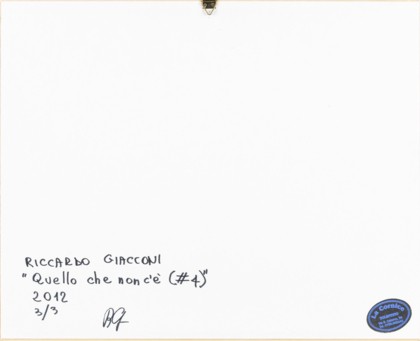 RICCARDO GIACCONI
"Quello che non c'è (#4)"
2012
3/3
RG
La Cornice